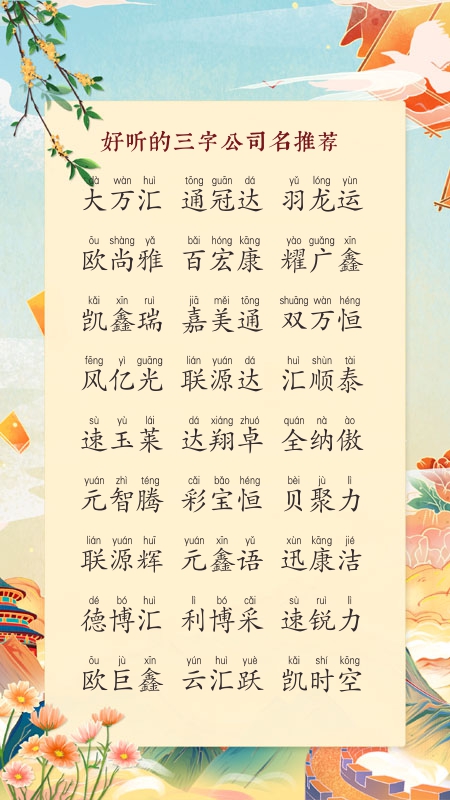 好听的三字公司名推荐
dà wàn huì tōng guān dá yǔ lóng yùn
大万汇 通冠达 羽龙运
ōu shàng yǎ bǎi hóng kāng yào guǎng xīn
欧尚雅 百宏康 耀广鑫
kǎi xīn ruì jiā měi tōng shuāng wàn héng
凯鑫瑞 嘉美通 双万恒
fēng yì guāng lián yuán dá huì shùn tài
风亿光 联源达 汇顺泰
sù yù lái dá xiáng zhuó quán nà ào
速玉莱 达翔卓 全纳傲
yuán zhì téng cǎi bǎo héng bèi jù lì
元智腾 彩宝恒 贝聚力
lián yuán huī yuán xīn yǔ xùn kāng jié
联源辉 元鑫语 迅康洁
dé bó huì lì bó cǎi sù ruì lì
德博汇 利博采 速锐力
ōu jù xīn yún huì yuè kǎi shí kōng
欧巨鑫 云汇跃 凯时空